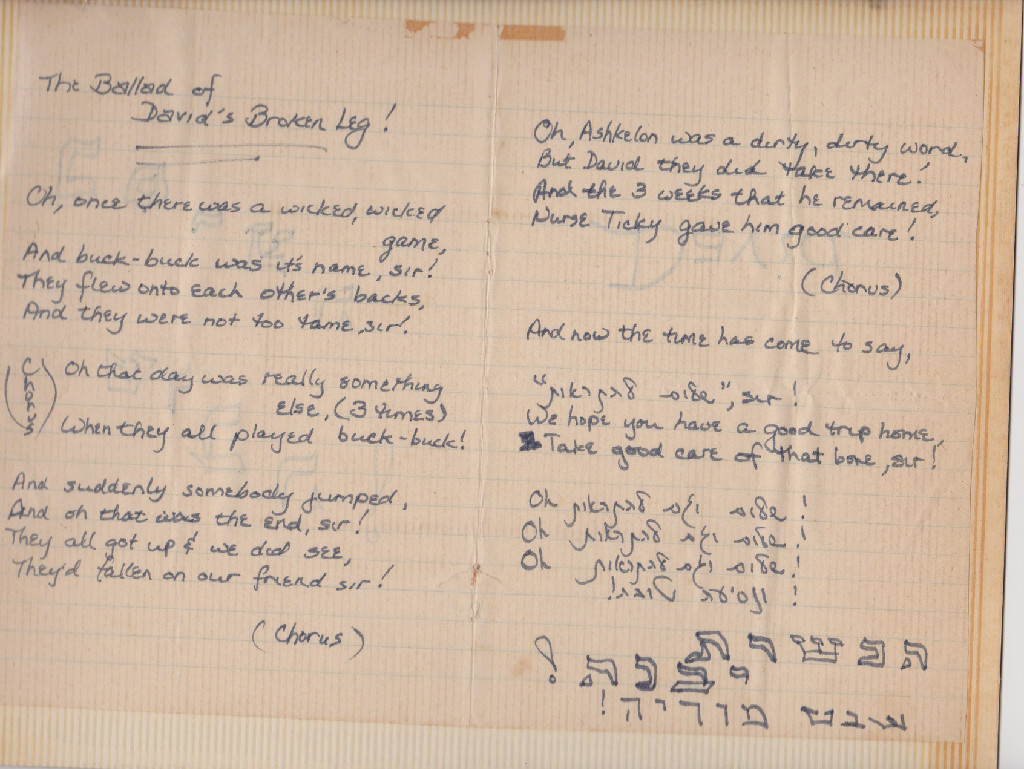 The Ballad of
David's Broken Leg!
Oh, once there was a wicked, wicked
game,
And buck-buck was it's name, sir!
They flew onto each other's backs,
And they were not too tame, sir!
Chorus
Oh that day was really something
else, (3 times)
When they all played buck-buck!
And suddenly somebody jumped,
And oh that was the end, sir!
They all got up & we did see,
They'd fallen on our friend sir!
(Chorus)
Oh, Ashkelon was a dirty, dirty word,
But David they did take there!
And the 3 weeks that he remained,
Nurse Ticky gave him good care!
(Chorus)
And now the time has come to say,
"שלום להתראות", sir!
We hope you have a good trip home,
Take good care of that bone, sir!
Oh שלום וגם להתראות!
Oh שלום וגם להתראות!
Oh שלום וגם להתראות!
ונסיעה טובה!!
המשרת
יבנה!
שבט מוריה!